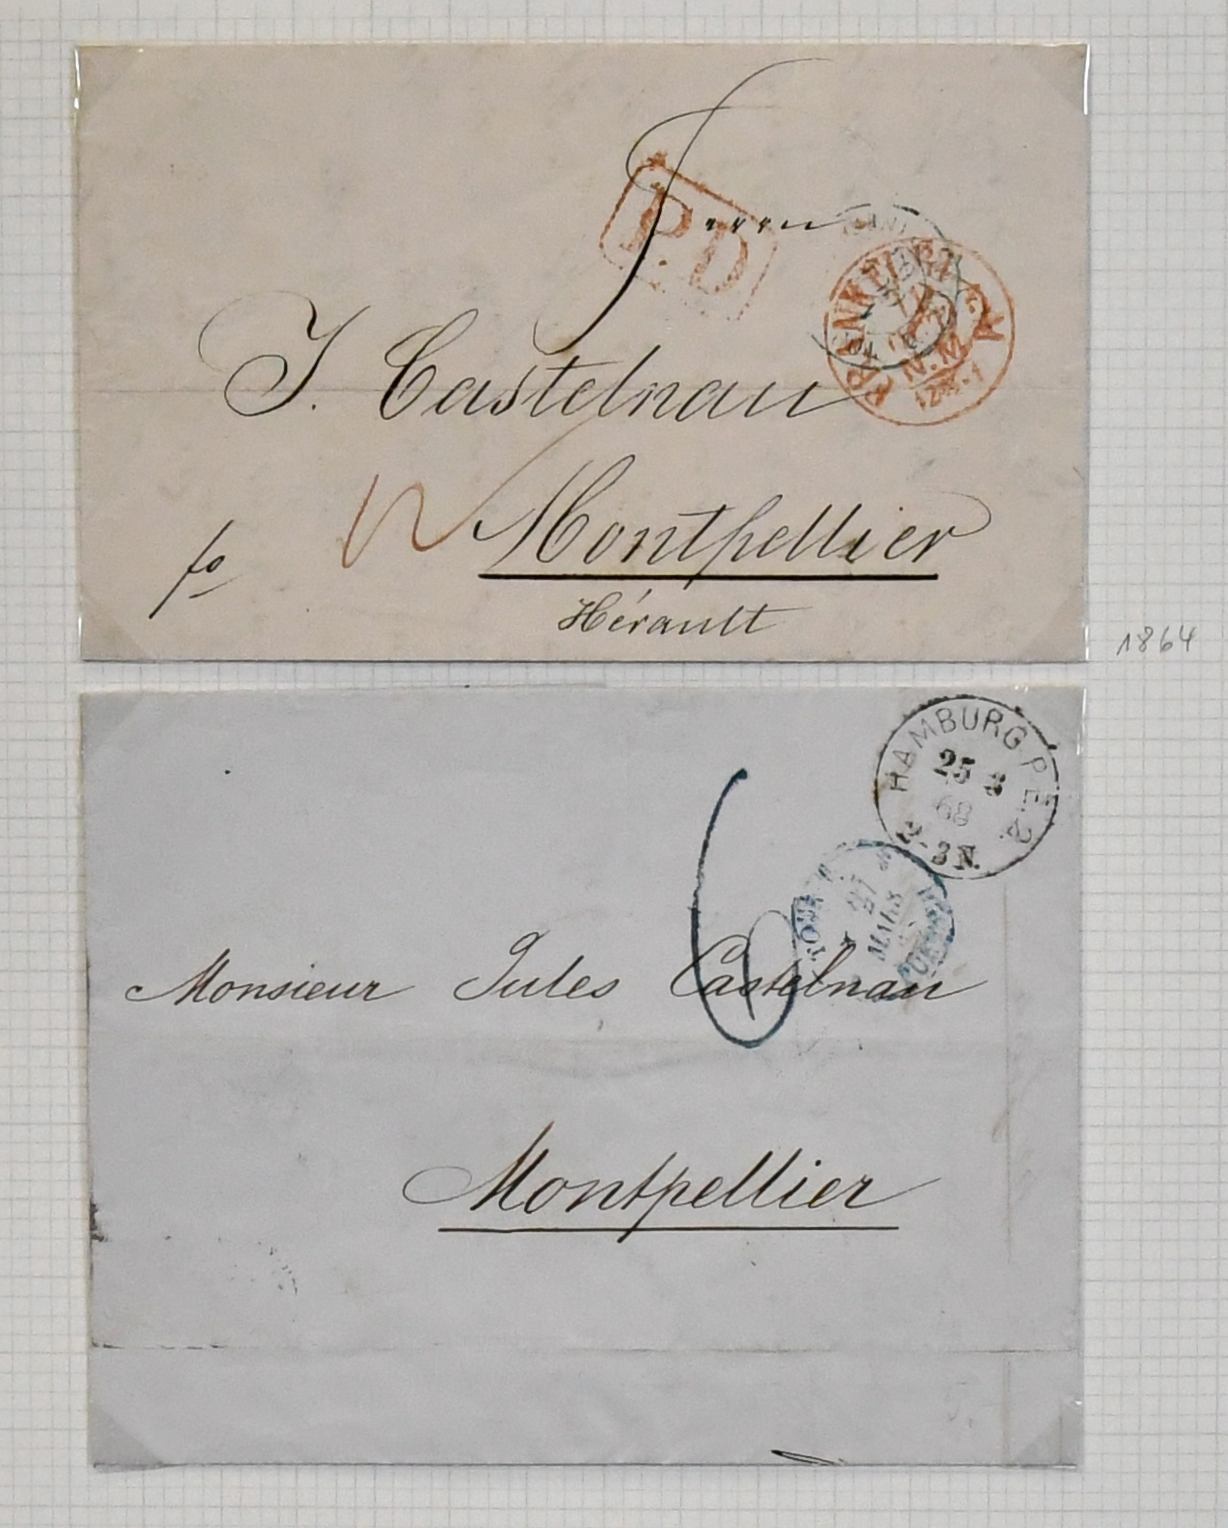 P.D
FRANKFURT A
N.M.
J. Castelnau
Montpellier
fo
Hérault
1864
HAMBURG P.E.2
25 3
68
2-3N.
27
MARS
Monsieur Jules Castelnau
6
Montpellier